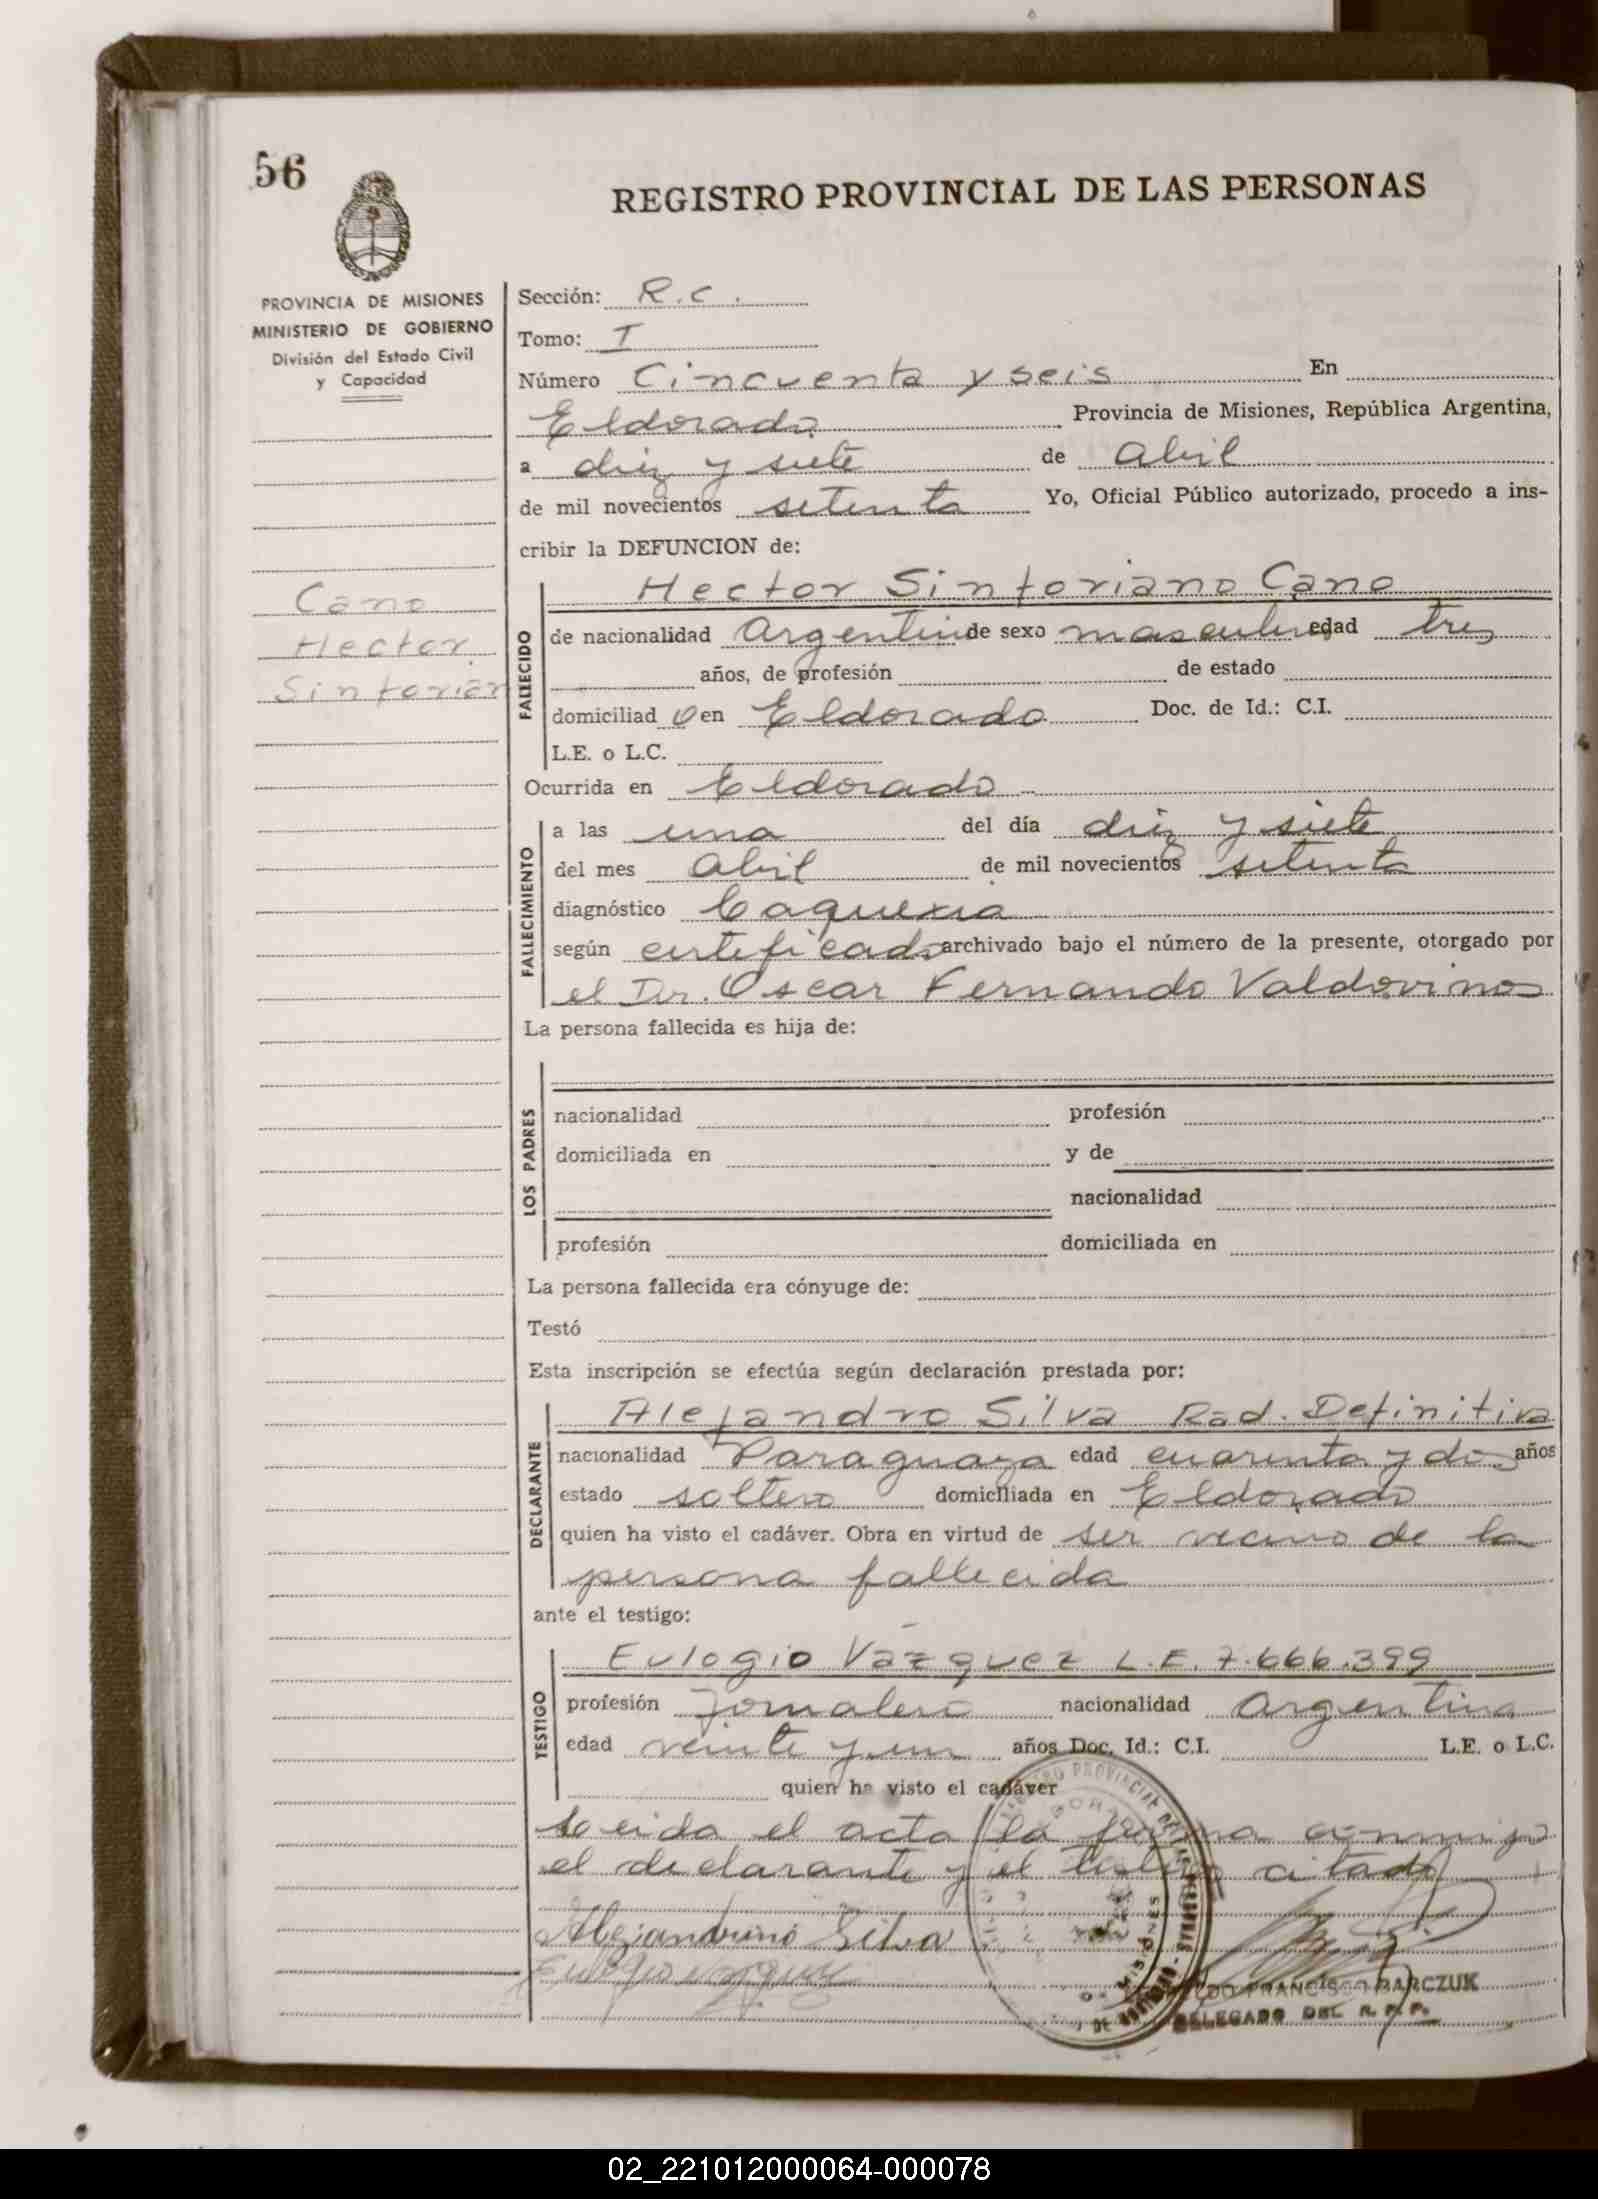 56
REGISTRO PROVINCIAL DE LAS PERSONAS
PROVINCIA DE MISIONES
MINISTERIO DE GOBIERNO
División del Estado Civil
y Capacidad
Cano
Hector
Sintorian
Sección: R.C.
Tomo: I
Número Cincuenta y seis En
Eldorado Provincia de Misiones, República Argentina,
a diez y siete de Abril
de mil novecientos setenta Yo, Oficial Público autorizado, procedo a ins-
cribir la DEFUNCION de:
FALLECIDO
Hector Sintoriano Cano
de nacionalidad Argentina de sexo masculino edad tres
años, de profesión de estado
domiciliad o en Eldorado Doc. de Id.: C.I.
L.E. o L.C.
Ocurrida en Eldorado
FALLECIMIENTO
a las una del día diez y siete
del mes Abril de mil novecientos setenta
diagnóstico Caquexia
según certificado archivado bajo el número de la presente, otorgado por
el Dr. Oscar Fernando Valdovinos
La persona fallecida es hija de:
LOS PADRES
nacionalidad profesión
domiciliada en y de
nacionalidad
profesión domiciliada en
La persona fallecida era cónyuge de:
Testó
Esta inscripción se efectúa según declaración prestada por:
DECLARANTE
Alejandro Silva Rad. Definitiva
nacionalidad Paraguaya edad cuarenta y dos años
estado soltero domiciliada en Eldorado
quien ha visto el cadáver. Obra en virtud de ser vecino de la
persona fallecida
ante el testigo:
TESTIGO
Eulogio Vazquez L.E. 7.666.399
profesión Jornalero nacionalidad Argentina
edad veinte y un años Doc. Id.: C.I. L.E. o L.C.
quien ha visto el cadáver
Leida el acta la firma conmigo
el declarante y el testigo citado
Alejandrino Silva
REGISTRO PROVINCIAL DE LAS PERSONAS
MISIONES
FRANCISCO BARCZUK
DELEGADO DEL R.P.P.
02_221012000064-000078